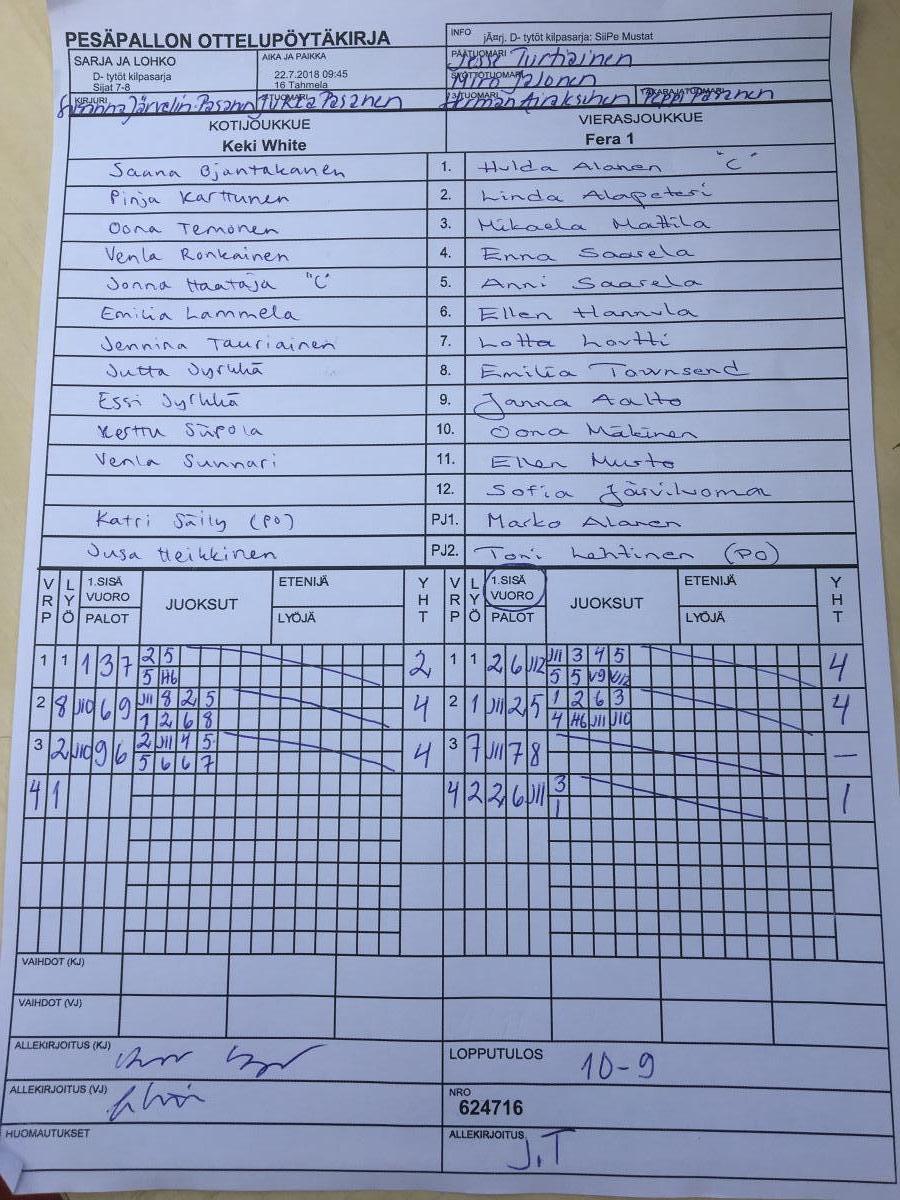 PESÄPALLON OTTELUPÖYTÄKIRJA
INFO jÃ¤rj. D- tytöt kilpasarja: SiiPe Mustat
SARJA JA LOHKO
D- tytöt kilpasarja
Sijat 7-8
AIKA JA PAIKKA
22.7.2018 09:45
16 Tahmela
PÄÄTUOMARI Jesse Turtiainen
SYÖTTÖTUOMARI Miro Jalonen
KIRJURI Susanna Järvelin-Pasanen
2-TUOMARI Jukka Pasanen
3-TUOMARI Herman Airaksinen
TAKARAJATUOMARI Peppi Pasanen
KOTIJOUKKUE VIERASJOUKKUE
Keki White Fera 1
Saana Ojantakanen 1. Hulda Alanen "C"
Pinja Karttunen 2. Linda Alapeteri
Oona Temonen 3. Mikaela Mattila
Venla Ronkainen 4. Enna Saarela
Jonna Haataja "C" 5. Anni Saarela
Emilia Lammela 6. Ellen Hannula
Jennina Tauriainen 7. Lotta Lortti
Jutta Jyrkkä 8. Emilia Townsend
Essi Jyrkkä 9. Janna Aalto
Kerttu Siipola 10. Oona Mäkinen
Venla Sunnari 11. Ellen Murto
12. Sofia Järviluoma
Katri Säily (PO) PJ1. Marko Alanen
Jusa Heikkinen PJ2. Toni Lehtinen (PO)
VRP LYÖ 1.SISÄ VUORO PALOT JUOKSUT ETENIJÄ LYÖJÄ YHT VRP LYÖ 1.SISÄ VUORO PALOT JUOKSUT ETENIJÄ LYÖJÄ YHT
1 1 1 3 7 2 5 2 1 1 2 6 J12 J11 3 4 5 4
5 H6 5 5 V9 V12
2 8 J10 6 9 J11 8 2 5 4 2 1 J11 2 5 1 2 6 3 4
1 2 6 8 4 H6 J11 J10
3 2 J10 9 6 2 J11 4 5 4 3 7 J11 7 8 —
5 6 6 7
4 1 4 2 2 6 J11 3 1
1
VAIHDOT (KJ)
VAIHDOT (VJ)
ALLEKIRJOITUS (KJ)
LOPPUTULOS 10-9
ALLEKIRJOITUS (VJ)
NRO
624716
HUOMAUTUKSET
ALLEKIRJOITUS J.T